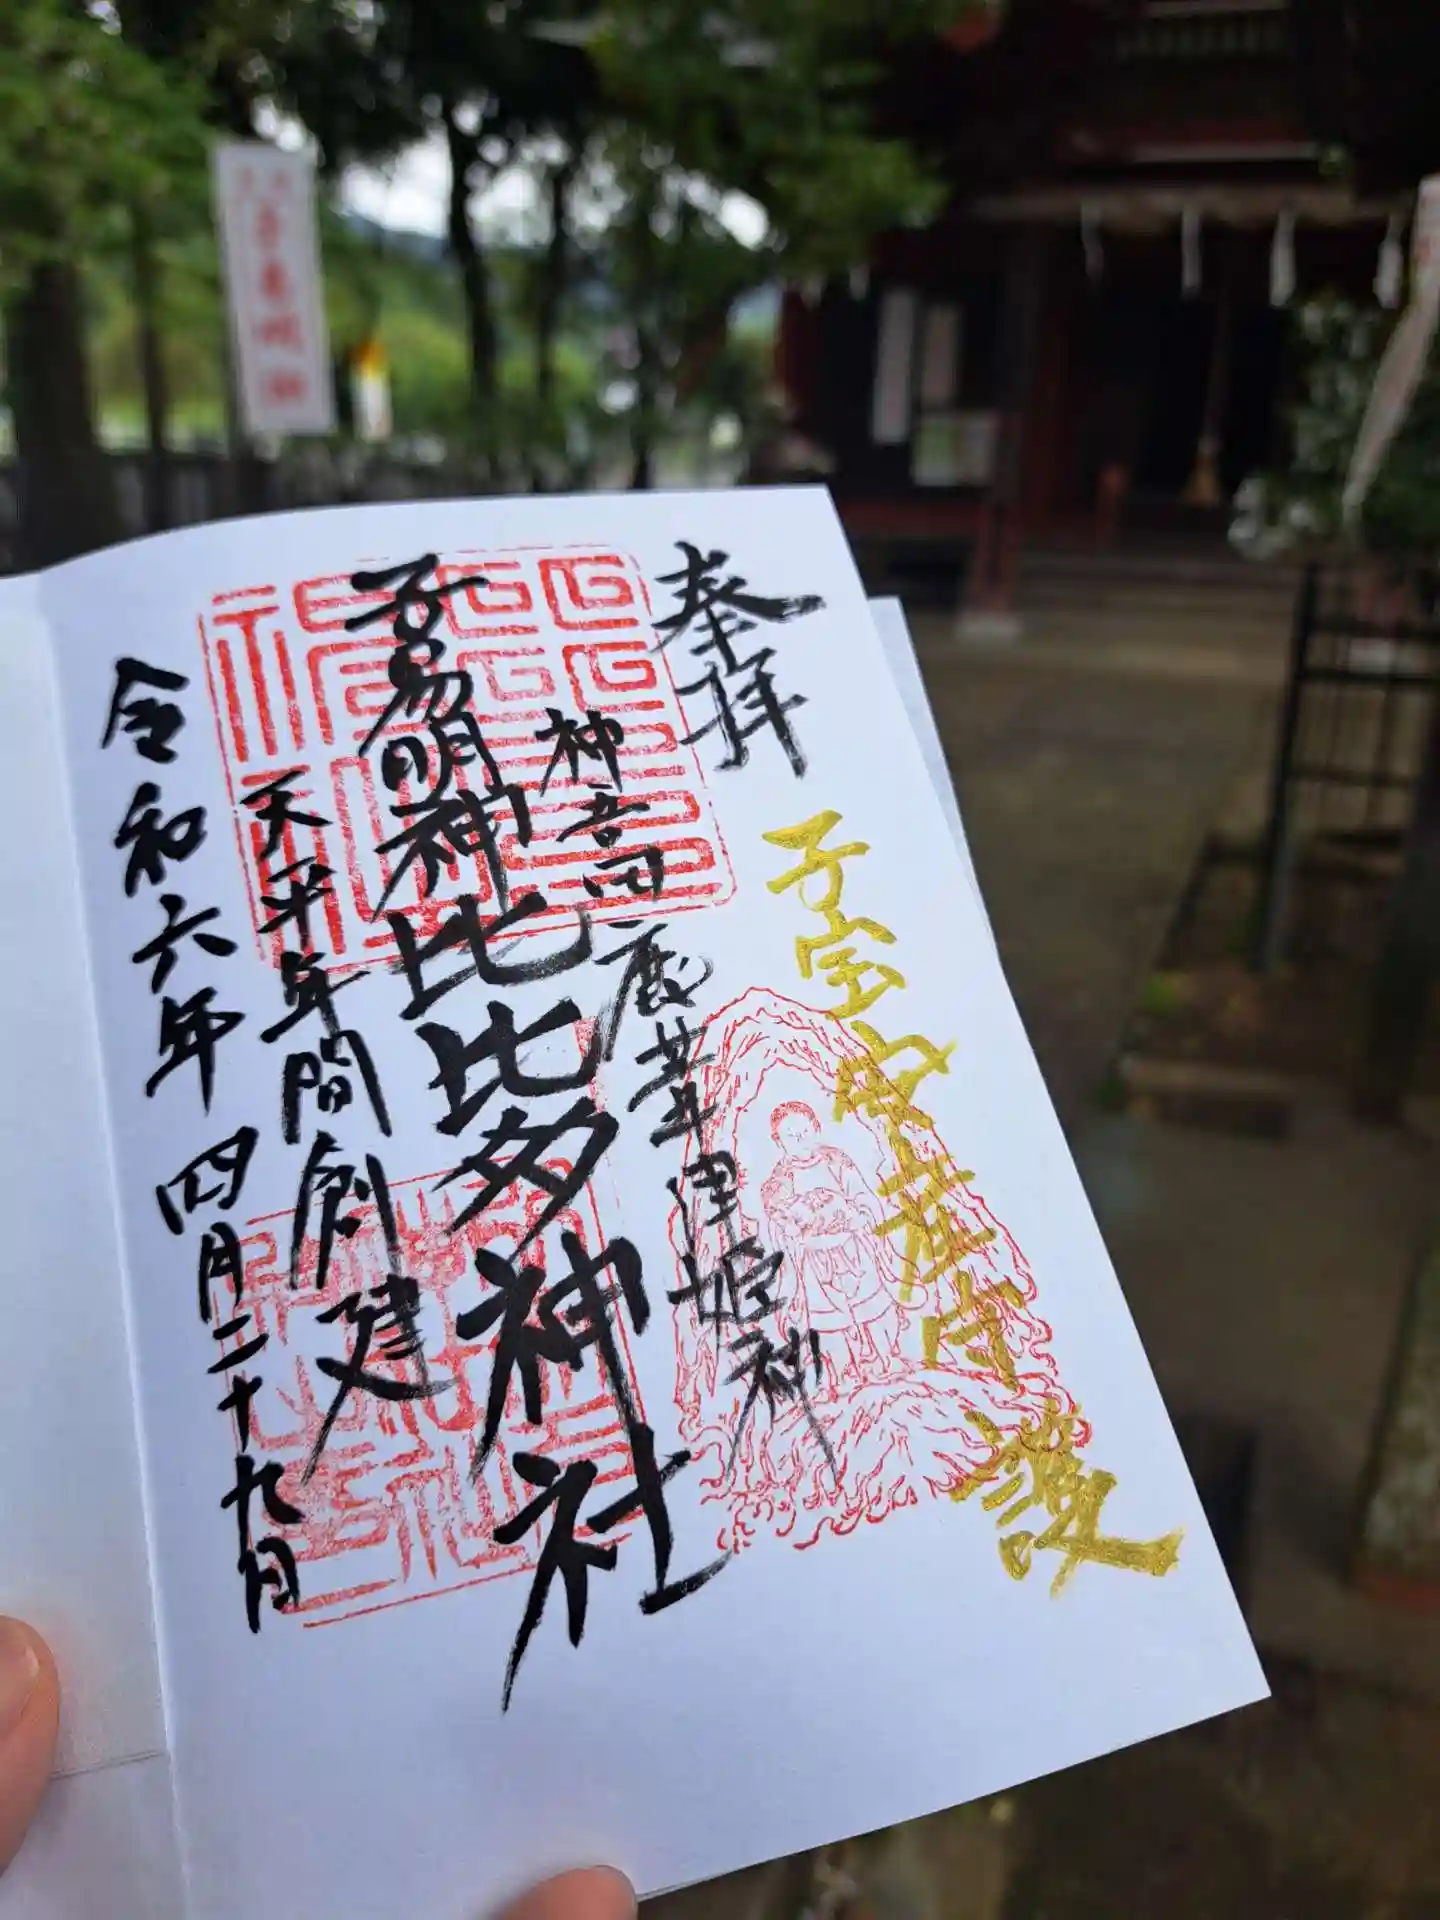 奉拝
子宝安産守護
神吾田鹿葦津姫神
子易明神比比多神社
天平年間創建
令和六年四月二十九日